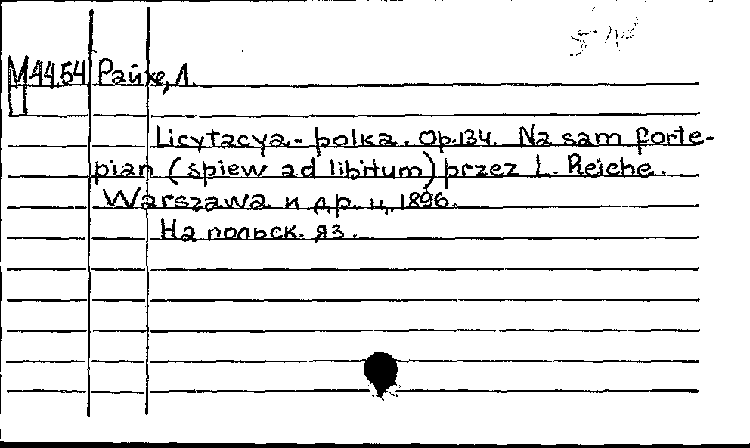 М 44.54 Райхе, Л.
Licytacya - polka. Op.134. Na sam forte-
pian (śpiew ad libitum) przez L. Reiche.
Warszawa и др. ц. 1896.
На польск. яз.